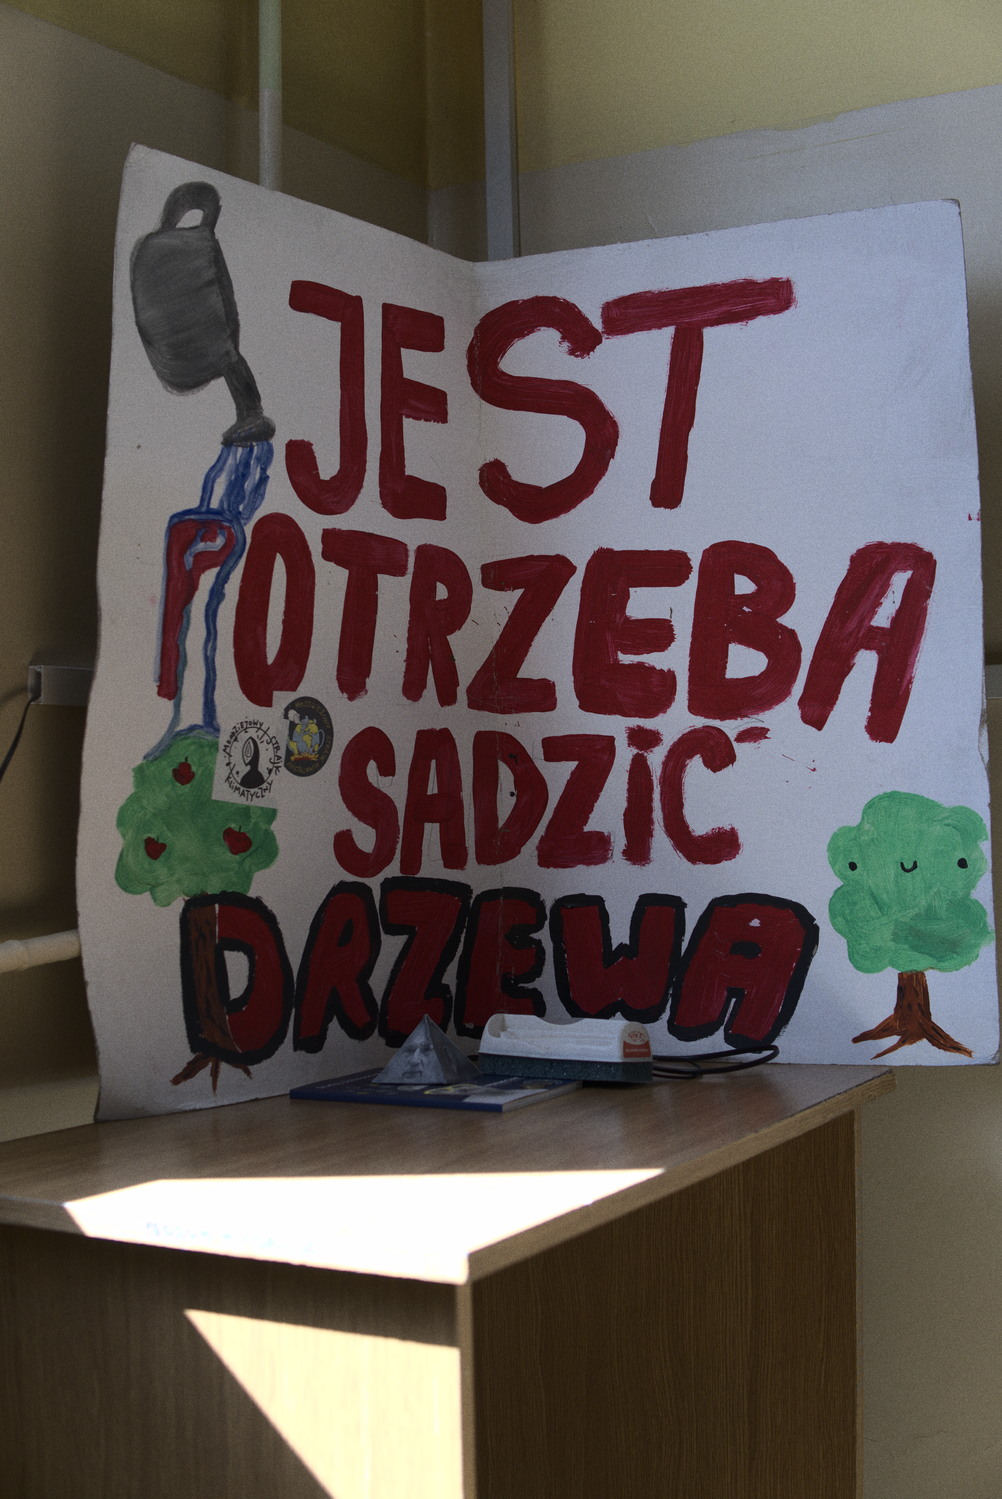 JEST
POTRZEBA
SADZIĆ
DRZEWA
MŁODZIEŻOWY STRAJK
KLIMATYCZNY